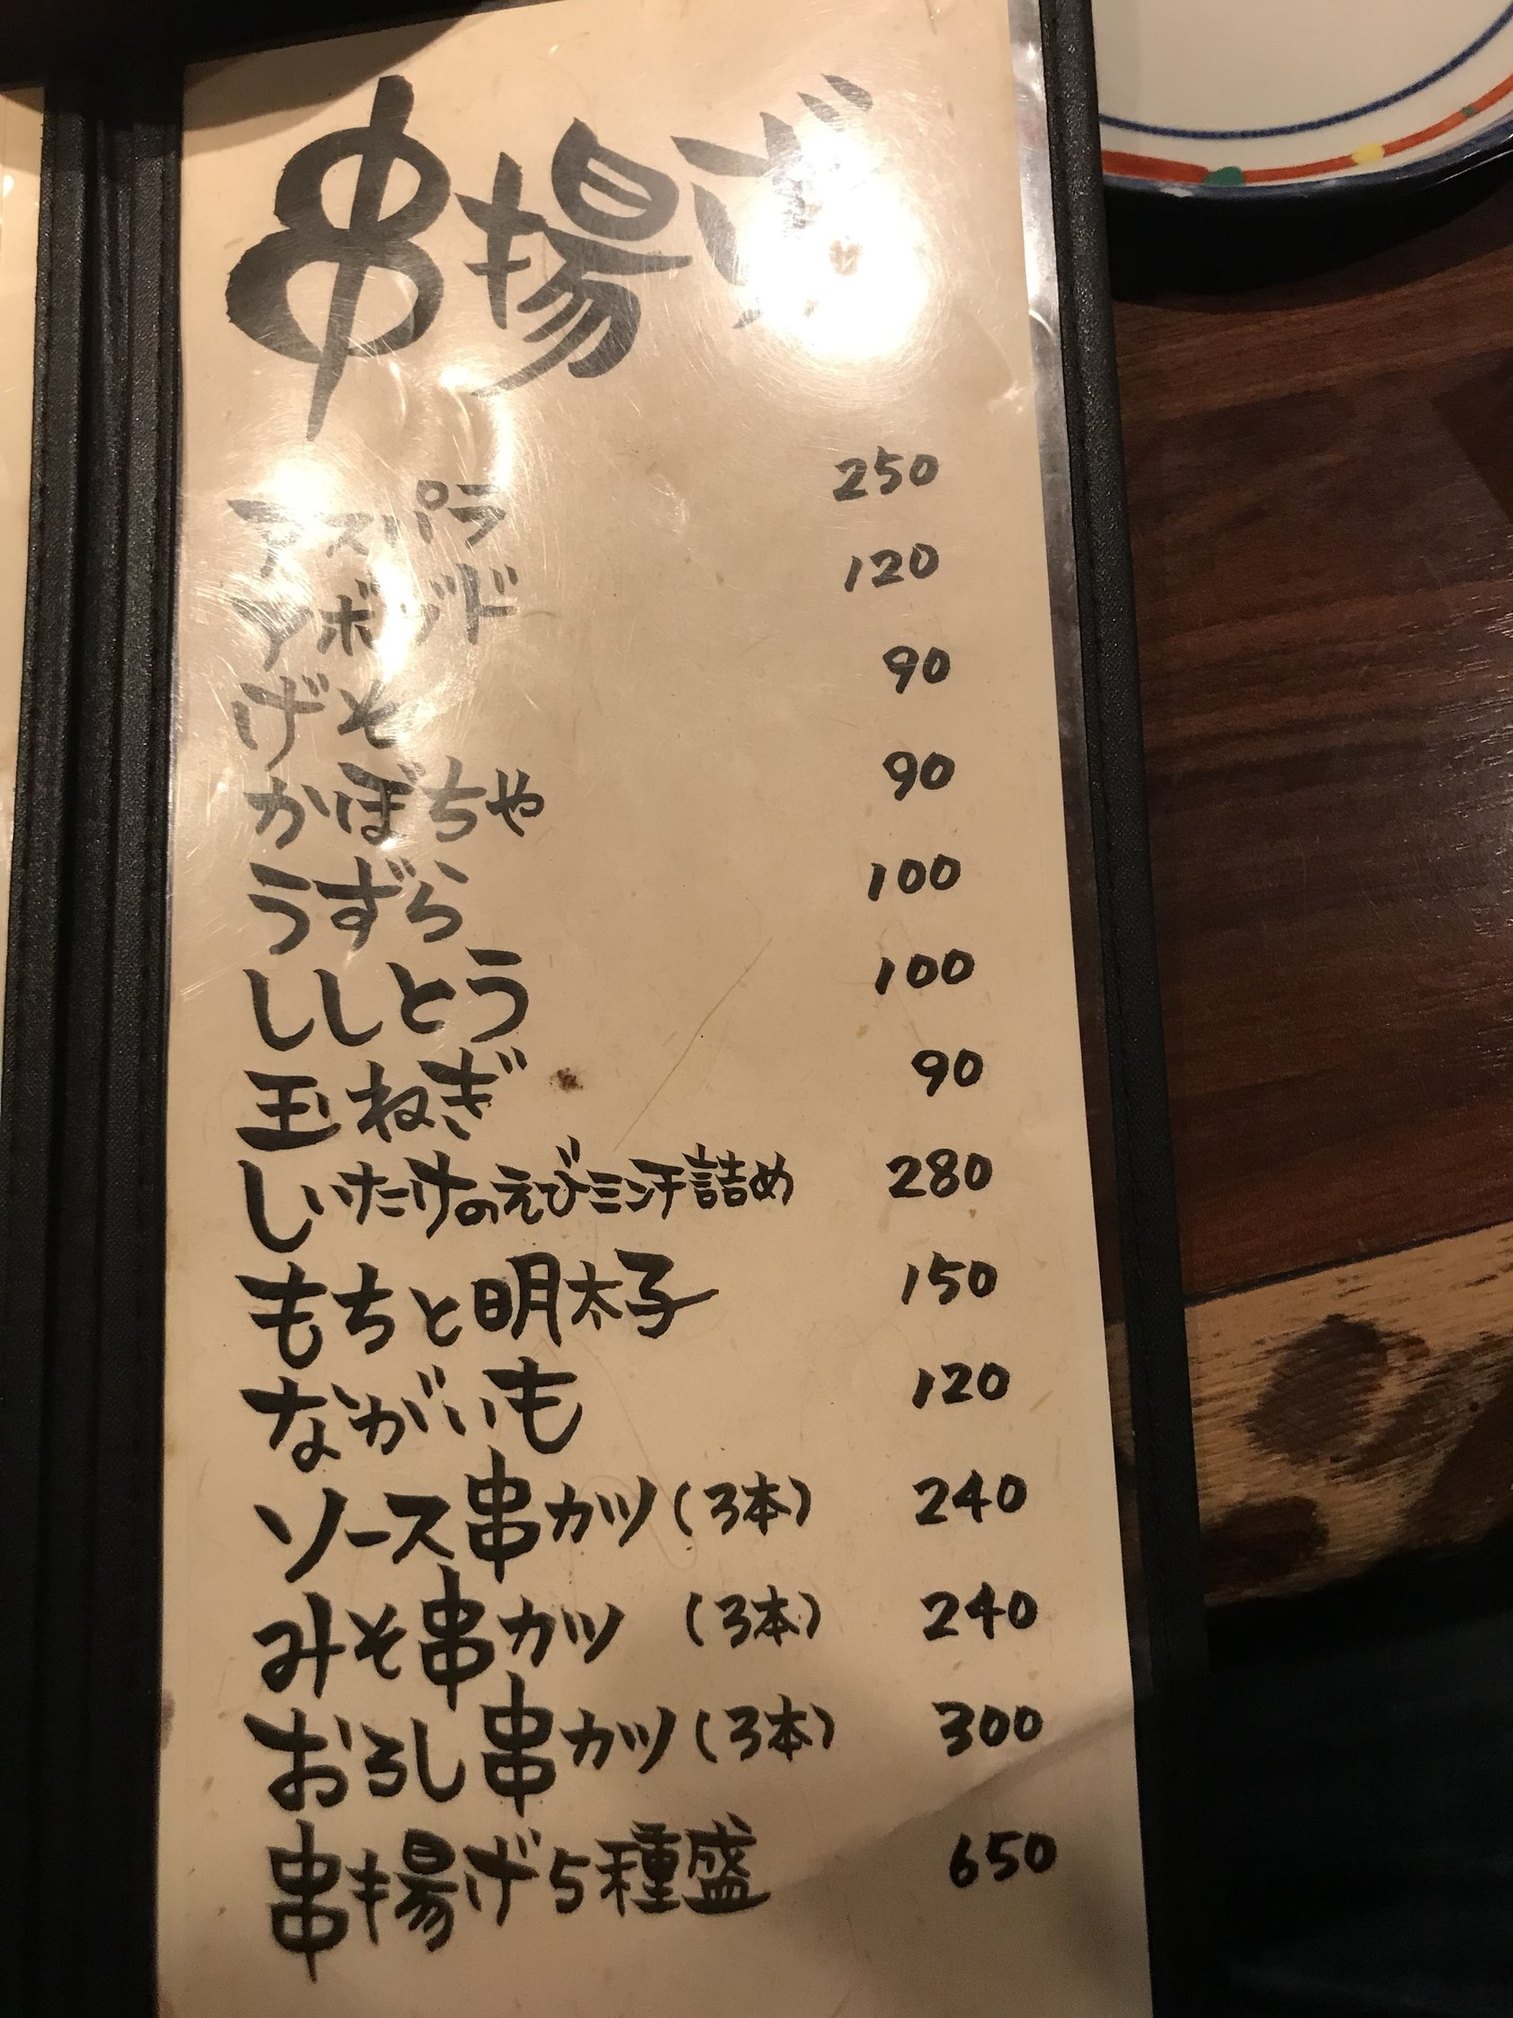 串揚げ
アスパラ 250
アボガド 120
げそ 90
かぼちゃ 90
うずら 100
ししとう 100
玉ねぎ 90
しいたけのえびミンチ詰め 280
もちと明太子 150
ながいも 120
ソース串カツ(3本) 240
みそ串カツ (3本) 240
おろし串カツ(3本) 300
串揚げ5種盛 650